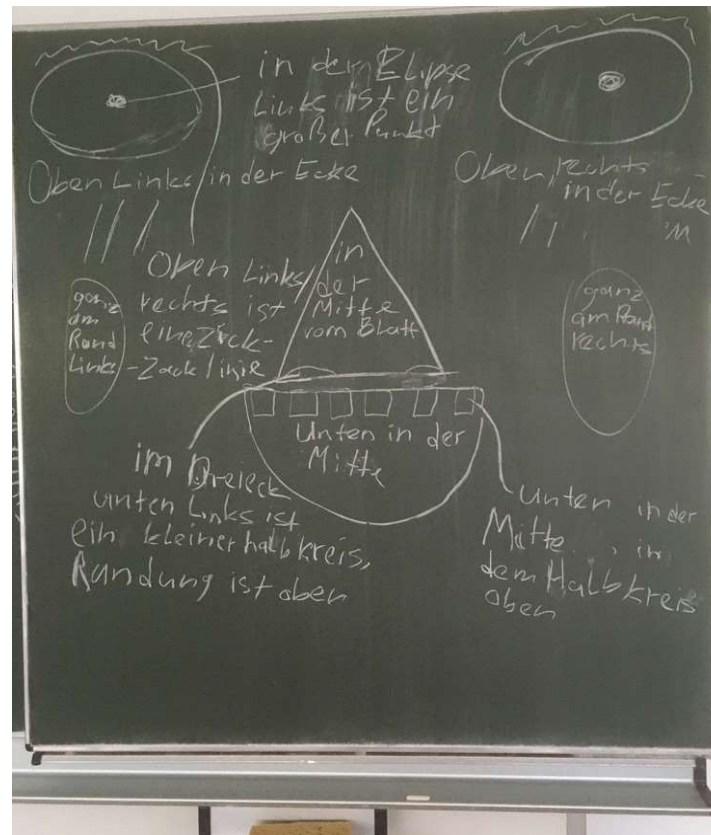 in der Elipse
Links ist ein
großer Punkt
Oben Links in der Ecke
Oben rechts
in der Ecke
Oben Links
rechts ist
eine Zick-
-Zacklinie
in
der
Mitte
vom Blatt
ganz
am
Rand
Links
ganz
am Rand
rechts
Unten in der
Mitte
im Dreieck
unten Links ist
ein kleiner halbkreis,
Rundung ist oben
Unten in der
Mitte in
dem Halbkreis
oben